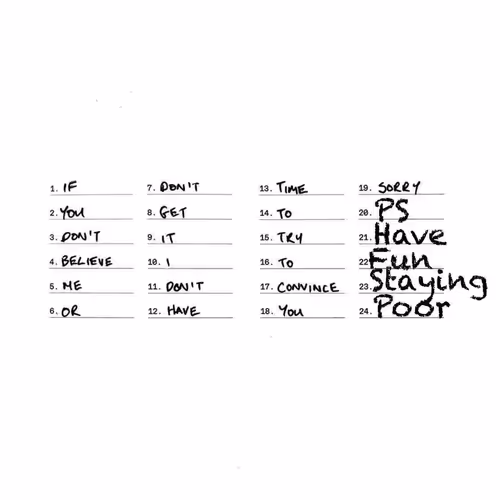 1. IF
2. YOU
3. DON'T
4. BELIEVE
5. ME
6. OR
7. DON'T
8. GET
9. IT
10. I
11. DON'T
12. HAVE
13. TIME
14. TO
15. TRY
16. TO
17. CONVINCE
18. YOU
19. SORRY
20. PS
21. Have
22. Fun
23. Staying
24. Poor